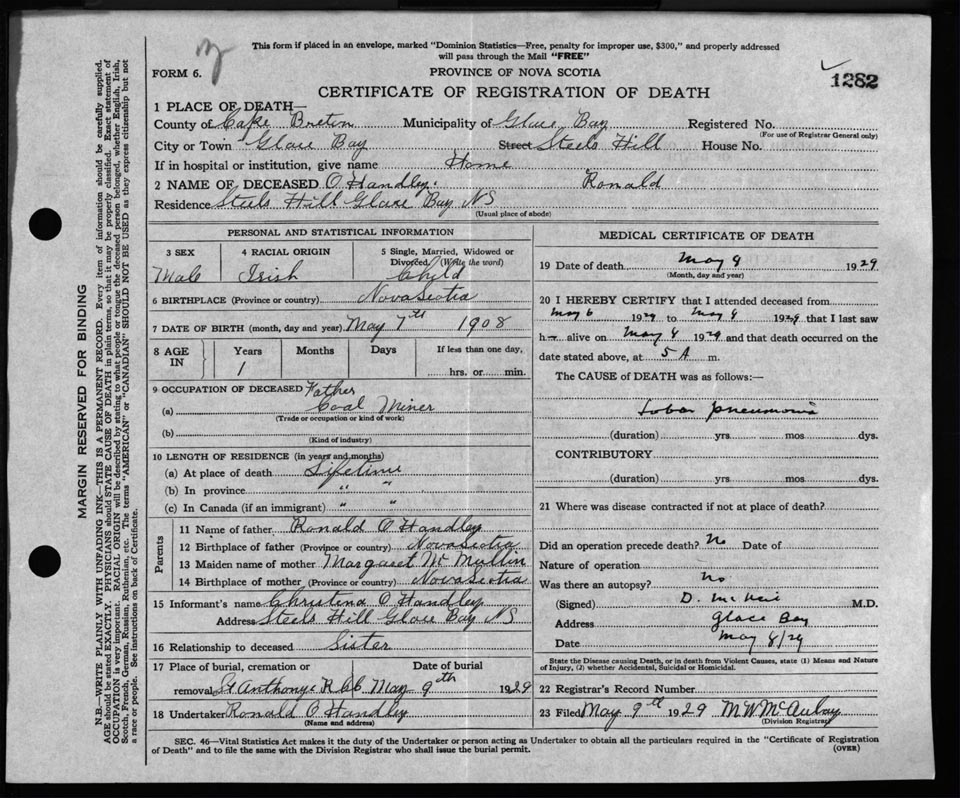 This form if placed in an envelope, marked "Dominion Statistics—Free, penalty for improper use, $300," and properly addressed
will pass through the Mail "FREE"
FORM 6.
PROVINCE OF NOVA SCOTIA
1282
CERTIFICATE OF REGISTRATION OF DEATH
1 PLACE OF DEATH—
County of Cape Breton Municipality of Glace Bay Registered No.
(For use of Registrar General only)
City or Town Glace Bay Street Steels Hill House No.
If in hospital or institution, give name Home
2 NAME OF DECEASED O'Handley. Ronald
Residence Steels Hill Glace Bay NS
(Usual place of abode)
PERSONAL AND STATISTICAL INFORMATION
3 SEX 4 RACIAL ORIGIN 5 Single, Married, Widowed or
Divorced (Write the word)
Male Irish Child
6 BIRTHPLACE (Province or country) Nova Scotia
7 DATE OF BIRTH (month, day and year) May 7th 1908
8 AGE IN Years Months Days If less than one day,
1 hrs. or min.
9 OCCUPATION OF DECEASED Father
(a) Coal Miner
(Trade or occupation or kind of work)
(b)
(Kind of industry)
10 LENGTH OF RESIDENCE (in years and months)
(a) At place of death Lifetime
(b) In province " "
(c) In Canada (if an immigrant) " "
Parents
11 Name of father Ronald O'Handley
12 Birthplace of father (Province or country) Nova Scotia
13 Maiden name of mother Margaret McMullin
14 Birthplace of mother (Province or country) Nova Scotia
15 Informant's name Christina O'Handley
Address Steels Hill Glace Bay NS
16 Relationship to deceased Sister
17 Place of burial, cremation or Date of burial
removal St Anthonys R C C May 9th 1929
18 Undertaker Ronald O'Handley
(Name and address)
MEDICAL CERTIFICATE OF DEATH
19 Date of death May 8 1929
(Month, day and year)
20 I HEREBY CERTIFY that I attended deceased from
May 6 1929 to May 8 1929 that I last saw
h alive on May 8 1929 and that death occurred on the
date stated above, at 5 A m.
The CAUSE of DEATH was as follows:—
Lobar pneumonia
(duration) yrs mos dys.
CONTRIBUTORY
(duration) yrs. mos. dys.
21 Where was disease contracted if not at place of death?
Did an operation precede death? No Date of
Nature of operation
Was there an autopsy? No
(Signed) D. McNeil M.D.
Address Glace Bay
Date May 8/29
State the Disease causing Death, or in death from Violent Causes, state (1) Means and Nature
of Injury, (2) whether Accidental, Suicidal or Homicidal.
22 Registrar's Record Number
23 Filed May 9th 1929 M W McAulay
(Division Registrar)
SEC. 46—Vital Statistics Act makes it the duty of the Undertaker or person acting as Undertaker to obtain all the particulars required in the "Certificate of Registration
of Death" and to file the same with the Division Registrar who shall issue the burial permit.
(OVER)
MARGIN RESERVED FOR BINDING
N.B.—WRITE PLAINLY, WITH UNFADING INK—THIS IS A PERMANENT RECORD. Every item of information should be carefully supplied.
AGE should be stated EXACTLY. PHYSICIANS should STATE CAUSE OF DEATH in plain terms, so that it may be properly classified. Exact statement of
OCCUPATION is very important. RACIAL ORIGIN will be described by stating to what people or tongue the deceased person belonged, whether English, Irish,
Scotch, French, German, Russian, Ruthenian, etc. The terms "AMERICAN" or "CANADIAN" SHOULD NOT BE USED as they express citizenship but not
a race or people. See instructions on back of Certificate.